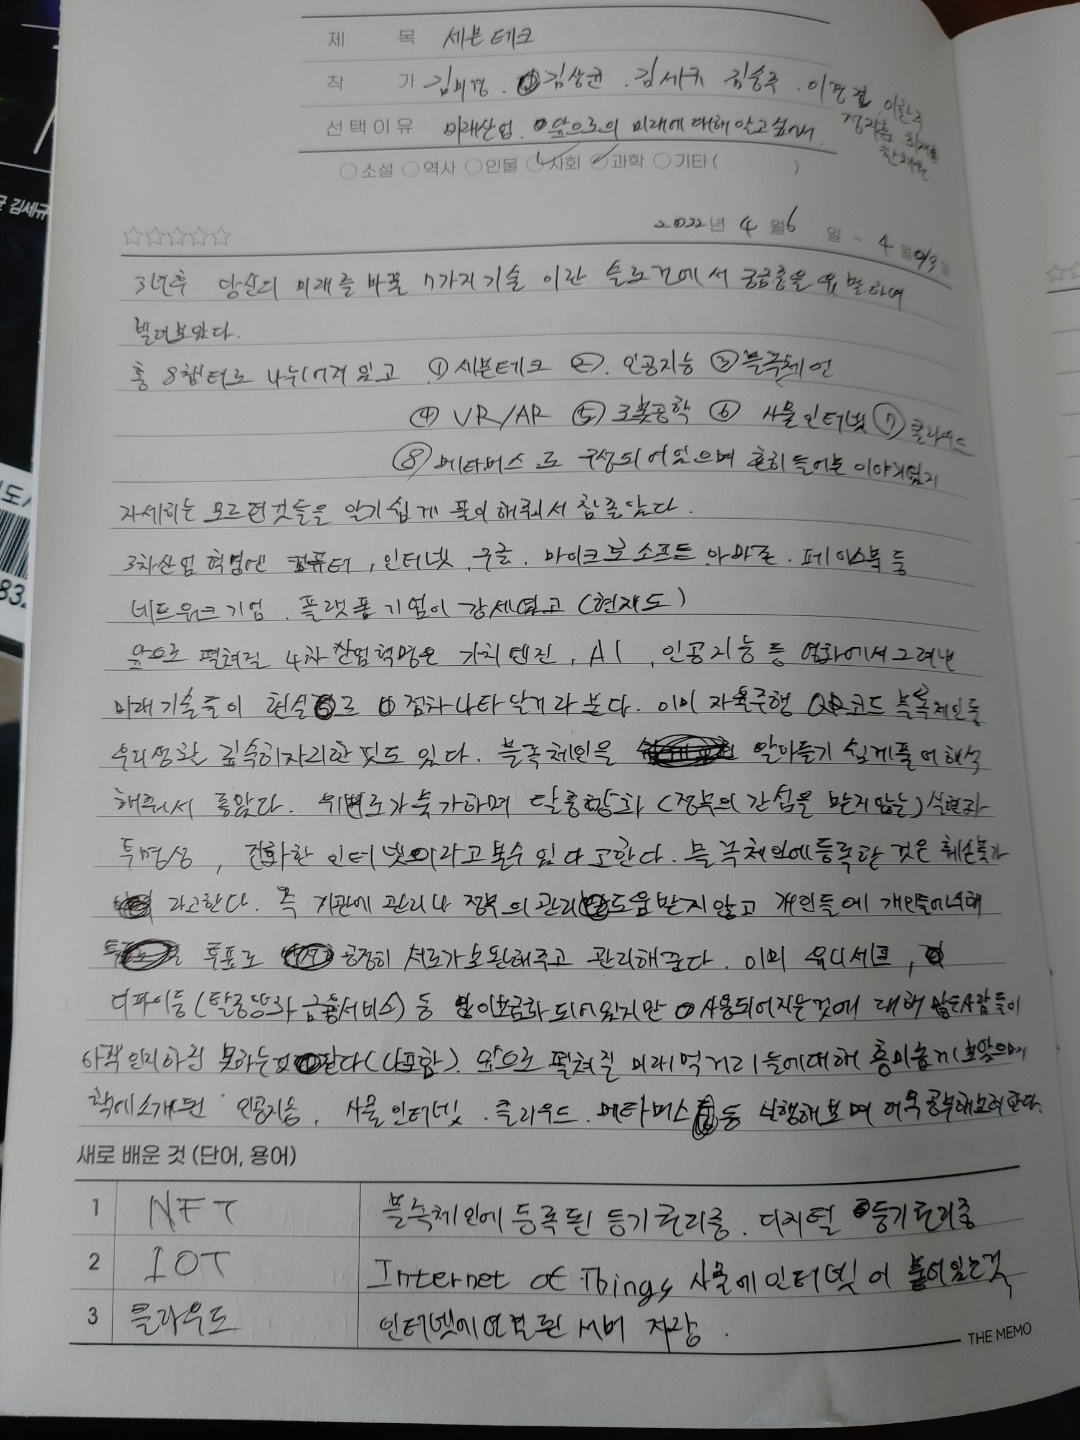 제 목 세븐테크
작 가 김미경. 김상균. 김세규 김승주. 이경전 이한주
정지훈 최재붕
한재권
선택이유 미래산업. 앞으로의 미래에 대해 알고 싶어서.
소설 역사 인물 사회 과학 기타( )
2022년 4월 6일 - 4월
3년후 당신의 미래를 바꿀 7가지 기술 이란 슬로건에서 궁금증을 유발하여
빌려보았다.
총 8챕터로 나누어져 있고 ① 세븐테크 ②. 인공지능 ③ 블록체인
④ VR/AR ⑤ 로봇공학 ⑥ 사물인터넷 ⑦ 클라우드
⑧ 메타버스로 구성되어있으며 흔히 들어본 이야기였지
자세히는 모르던것들을 알기쉽게 풀이해줘서 참 좋았다.
3차산업 혁명엔 컴퓨터, 인터넷, 구글. 마이크로소프트 아마존. 페이스북 등
네트워크기업. 플랫폼기업이 강세였고 (현재도)
앞으로 펼쳐질 4차 산업혁명은 가치엔진, AI, 인공지능 등 영화에서 그려낸
미래기술들이 현실로 점차 나타날거라 본다. 이미 자율주행 QR코드 블록체인등
우리생활 깊숙히자리한 것도 있다. 블록체인을 알아듣기 쉽게풀어해석
해줘서 좋았다. 위변조가 불가하며 탈중앙화 (정부의 간섭을 받지않는) 실현과
투명성, 진화한 인터넷이라고 볼수 있다고한다. 블록체인에 등록한 것은 훼손불가
라고한다. 즉 기관에 관리나 정부의 관리 도움받지 않고 개인들에 개인들에의해
투표로 공정히 서로가 보완해주고 관리해준다. 이미 유니세프,
디파이등 (탈중앙화 금융서비스) 등 많이보급화 되어있지만 사용되어지는것에 대해 많은사람들이
아직 인지하진 못하는것 같다 (나포함). 앞으로 펼쳐질 미래먹거리들에대해 흥미롭게 보았으며
책에소개된 인공지능, 사물인터넷. 클라우드. 메타버스 등 실행해보며 더욱공부해보려한다.
새로 배운 것 (단어, 용어)
1 NFT 블록체인에 등록된 등기권리증. 디지털 등기권리증
2 IOT Internet of Things 사물에 인터넷이 붙어있는것
3 클라우드 인터넷에연결된 서버 저장.
THE MEMO
김세규